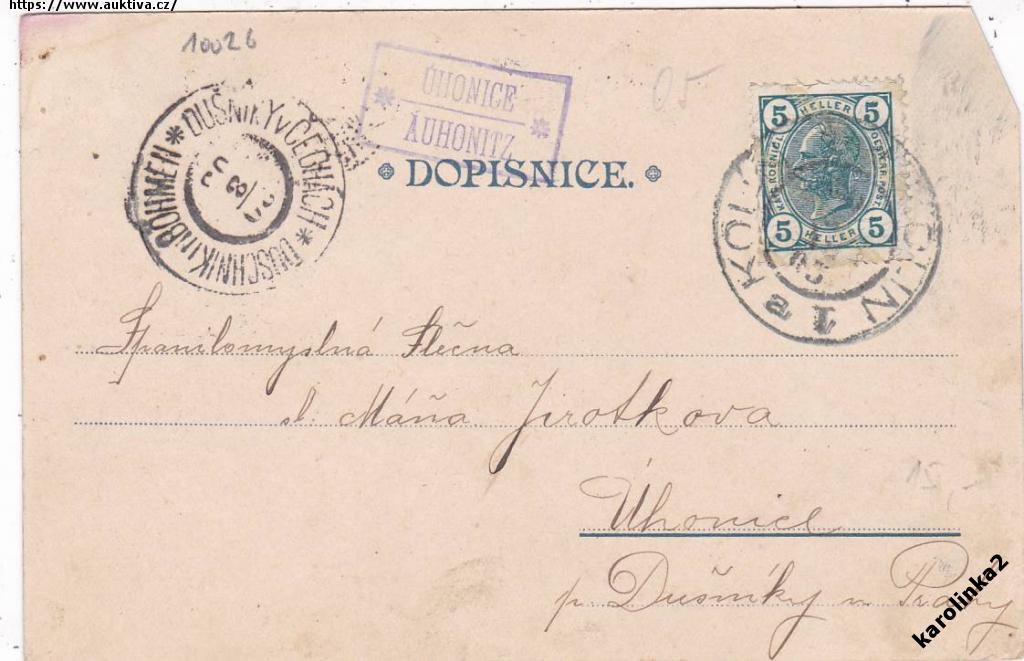 https://www.auktiva.cz/
10026
ÚHONICE
AUHONITZ
05
DUŠNIKY v ČECHÁCH * DUSCHNIK in BÖHMEN *
DOPISNICE.
5 HELLER 5
KAIS. KOENIGL. OESTERR. POST.
5 HELLER 5
KOLIN 1
Spanilomyslná Slečna
sl. Máňa Jirotkova
21
Úhonice
p. Dušníky u Prahy
karolinka2